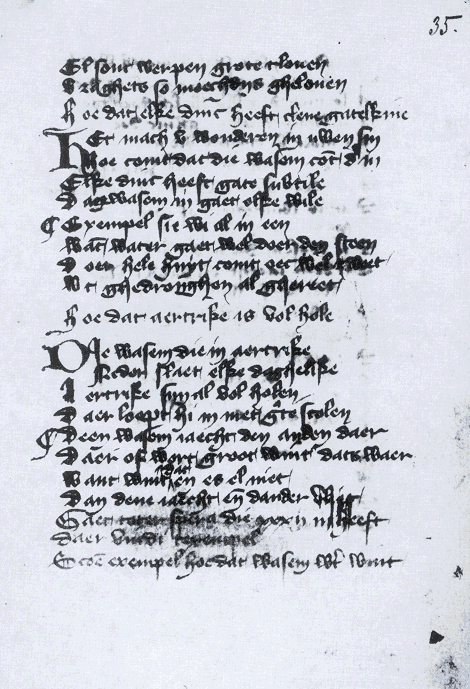 35.
El sout werpen grote clouen
Vraghets so moechdijs ghelouen
Hoe dat elke dinc heeft clene gatelkine
Het mach v wonderen in uwen sin
Hoe comt dat die wasem comt d in
Elke dinc heeft gate subtile
Dat wasem in gaet elke wile
Exempel sie wi al in een
Want water gaet wel doer den steen
Doer hele huyt comt oec wel tswet
Vt ghedronghen al ghereet
Hoe dat aertrike is vol hole
Die wasem die in aertrike
Neder slaet elke daghelike
Aertrike sijn al vol holen
Daer loept hi in met grote scolen
Deen wasem iaecht den anden daer
Daer of wort groot wint dats waer
Want wint dat en es el niet
Dan dene iaecht en dander
Gaet die xxxij heeft
daer vindi texempel
Scoen exempel hoe dat wasem wert wint